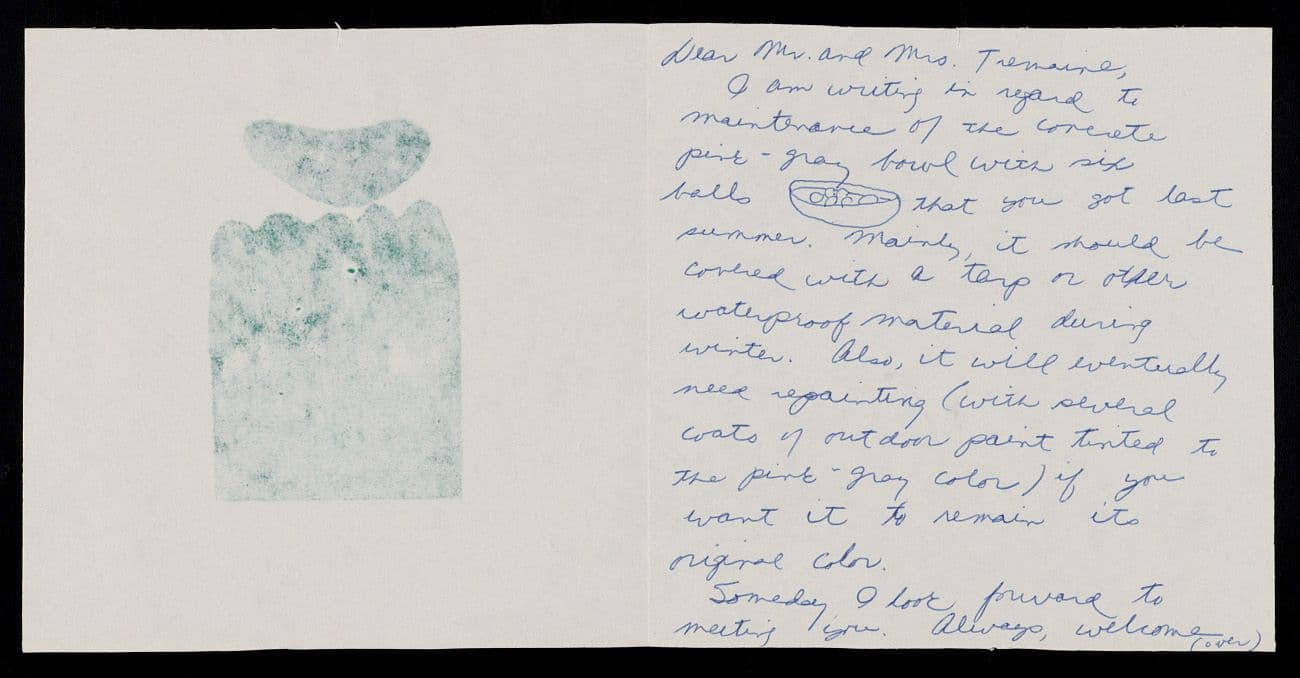 Dear Mr. and Mrs. Tremaine,
I am writing in regard to
maintenance of the concrete
pink-gray bowl with six
balls that you got last
summer. Mainly, it should be
covered with a tarp or other
waterproof material during
winter. Also, it will eventually
need repainting (with several
coats of outdoor paint tinted to
the pink-gray color) if you
want it to remain its
original color.
Someday I look forward to
meeting you. Always, welcome
(over)